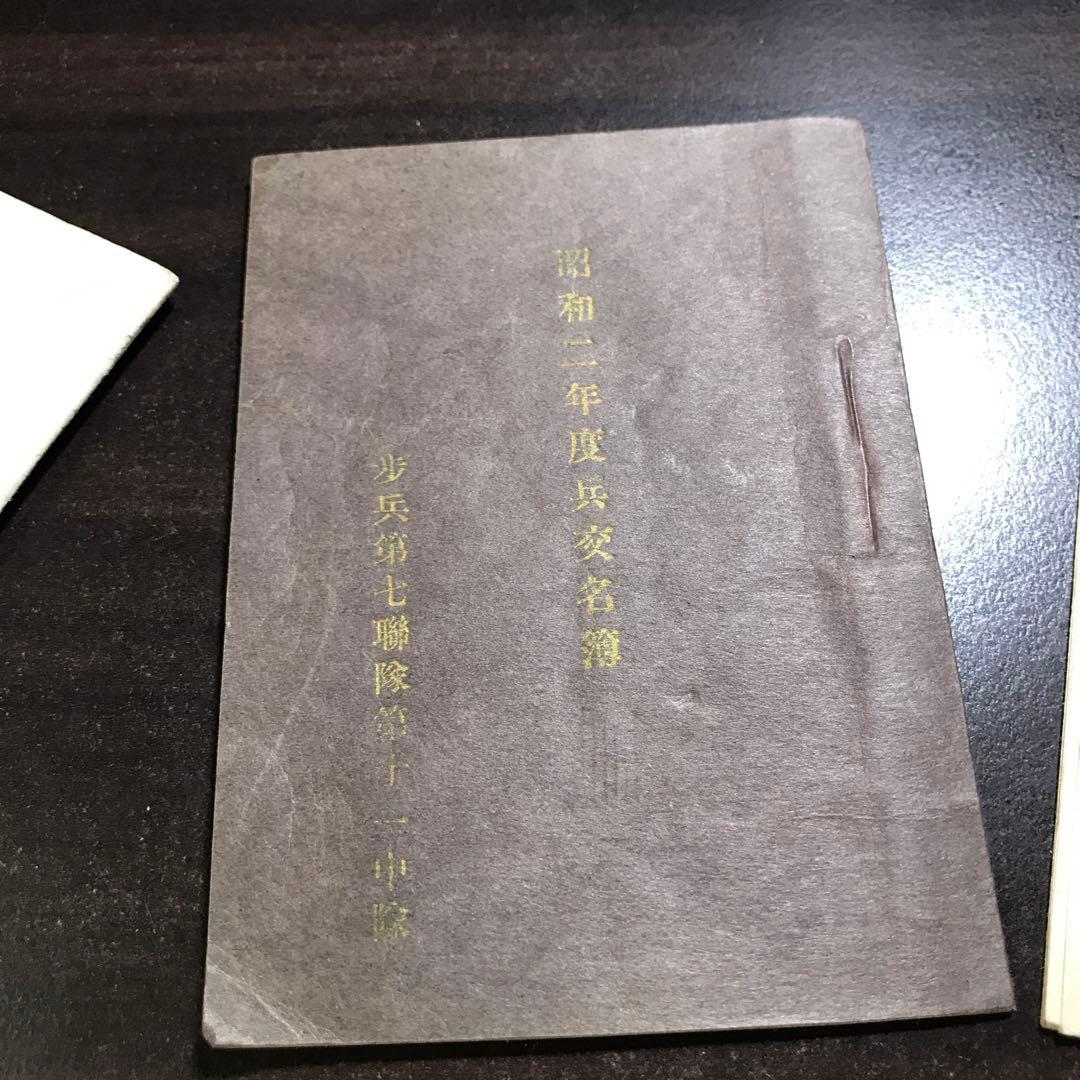 昭和二年度兵交名簿
歩兵第七聯隊第十一中隊